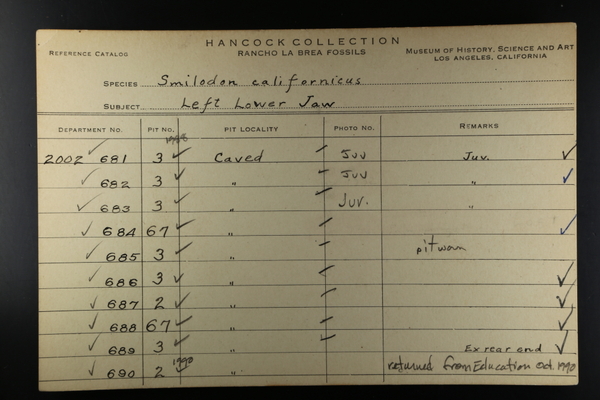 HANCOCK COLLECTION
REFERENCE CATALOG RANCHO LA BREA FOSSILS MUSEUM OF HISTORY, SCIENCE AND ART
LOS ANGELES, CALIFORNIA
SPECIES Smilodon californicus
SUBJECT Left Lower Jaw
DEPARTMENT NO. PIT NO. PIT LOCALITY PHOTO NO. REMARKS
2002 ✓ 681 3 ✓ Caved Juv Juv. ✓
✓ 682 3 ✓ " Juv " ✓
✓ 683 3 ✓ " Juv. "
✓ 684 67 ✓ " ✓
✓ 685 3 ✓ " pitworn
✓ 686 3 ✓ " ✓
✓ 687 2 ✓ " ✓
✓ 688 67 ✓ " ✓
✓ 689 3 ✓ " Ex rear and ✓
✓ 690 2 1990 ✓ " returned from Education Oct. 1990